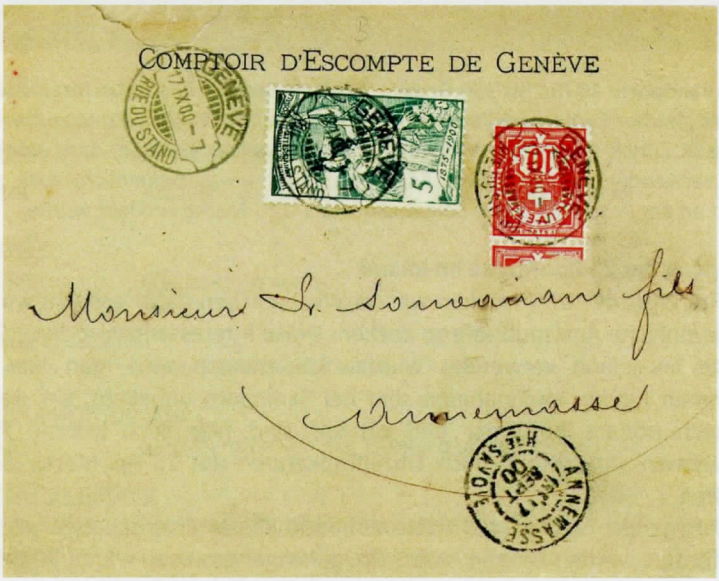 COMPTOIR D'ESCOMPTE DE GENÈVE
GENÈVE
17 IX 00-7
RUE DU STAND
GENÈVE
STAND
1875-1900
5
GENÈVE
10
Monsieur
fils
Annemasse
ANNEMASSE
17
SEPT
00
HTE SAVOIE